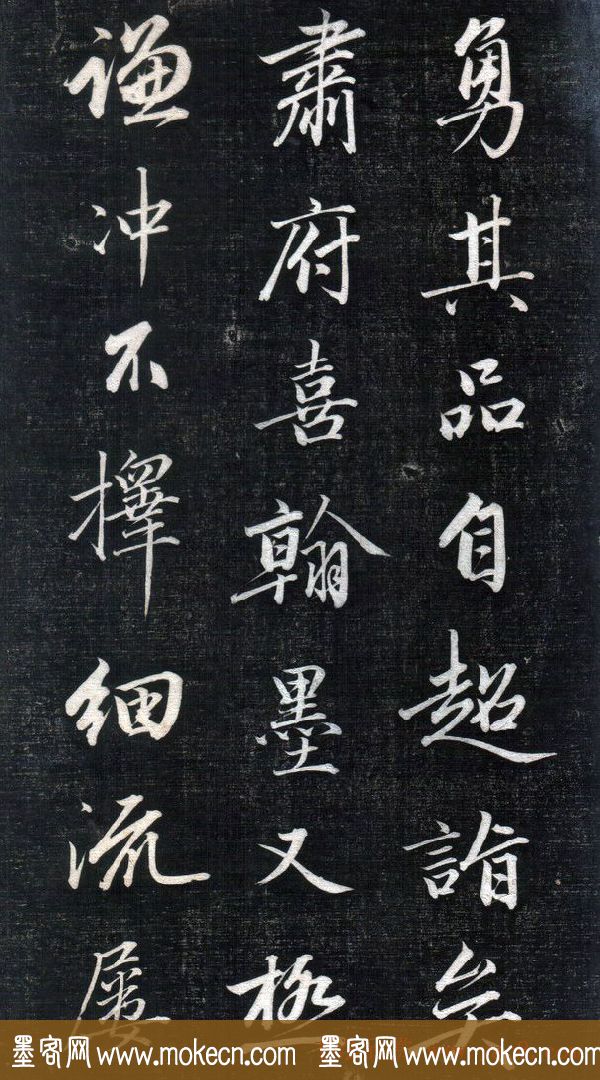 勇其品自超詣矣
肅府喜翰墨又極
謙冲不擇細流屢
墨客网 www.mokecn.com 墨客网 www.mokecn.com